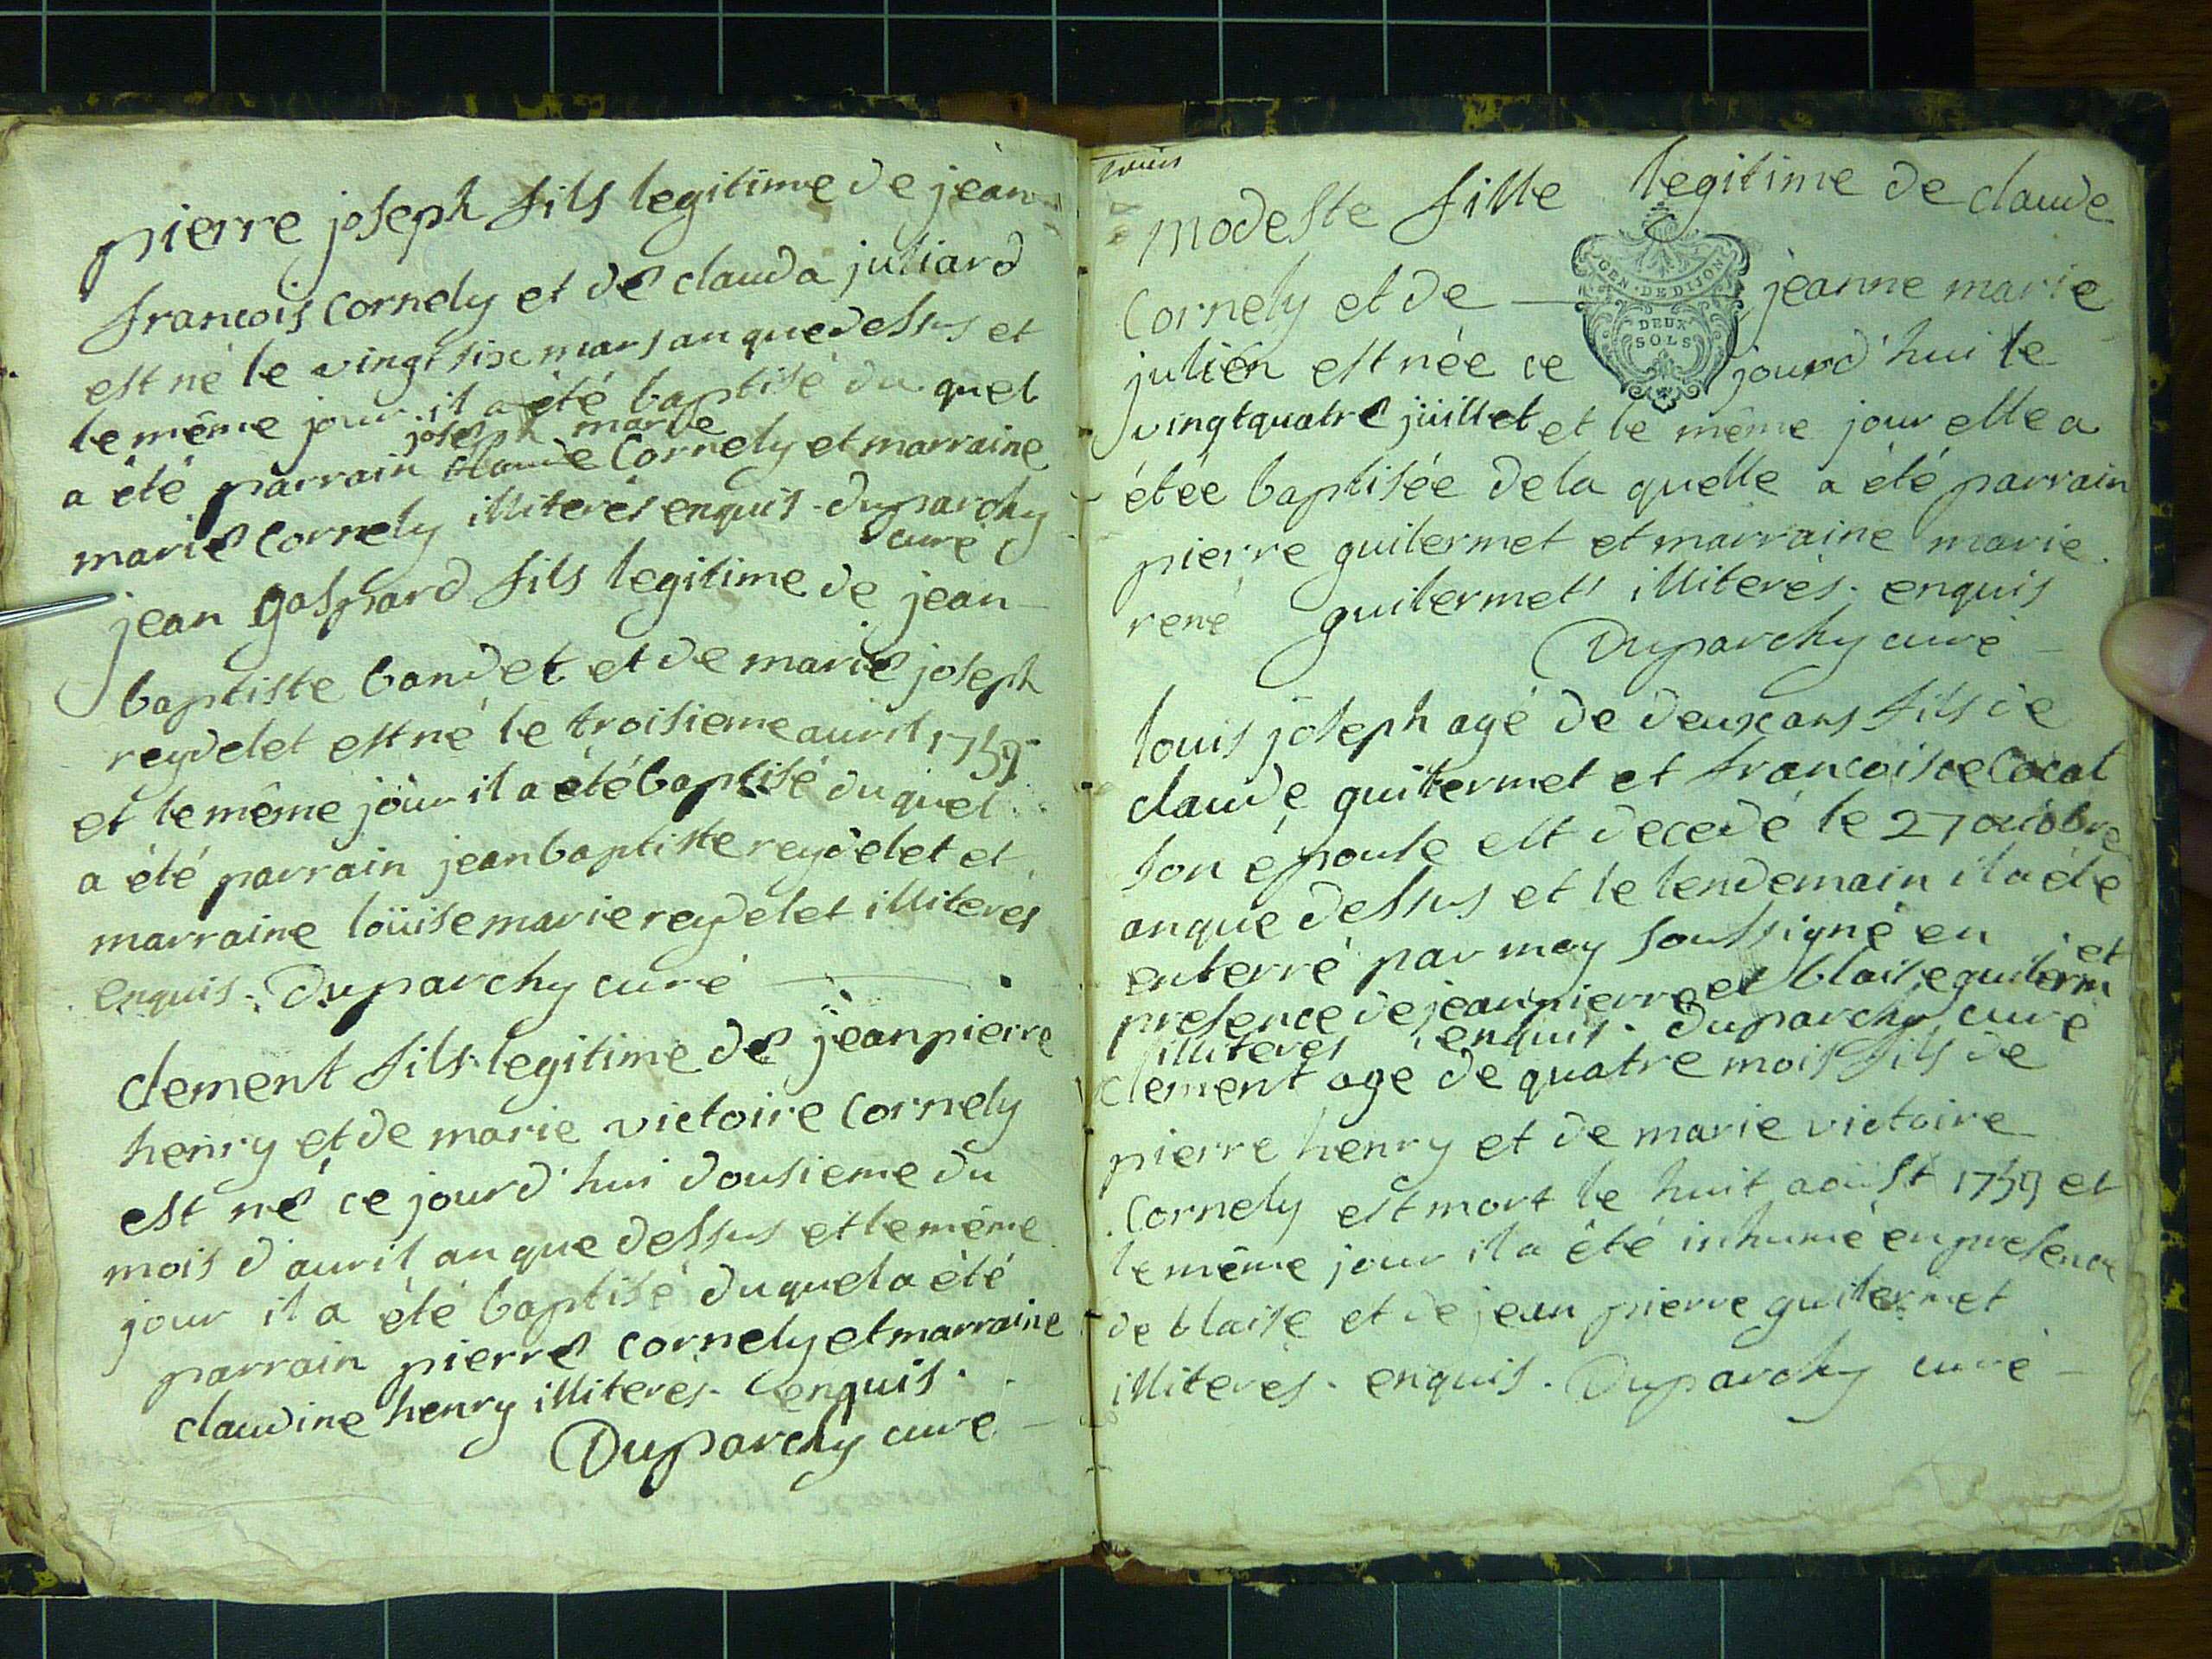 pierre joseph fils legitime de jean
francois cornely et de clauda juliard
est né le vingt six mars an que dessus et
le même jour il a été baptisé du quel
joseph marie
a été parrain claude Cornely et marraine
marie Cornely illiterés enquis. Duparchy
curé
jean gaspard fils legitime de jean
baptiste bandet et de marie joseph
reydelet est né le troisieme auril 1759
et le même jour il a été baptisé du quel
a été parrain jean baptiste reydelet et
marraine loüise marie reydelet illiterés
enquis. Duparchy curé
clement fils legitime de jean pierre
henry et de marie victoire cornely
est né ce jourd'hui dousieme du
mois d'auril an que dessus et le même
jour il a été baptisé du quel a été
parrain pierre cornely et marraine
claudine henry illiterés. enquis.
Duparchy curé
modeste fille legitime de claude
Cornely et de jeanne marie
GEN. DE DIJON
DEUX
SOLS
julien est née ce jourd'hui le
vingtquatre jüillet et le même jour elle a
étée baptisée de la quelle a été parrain
pierre guilermet et marraine marie
rené guilermet illiterés. enquis
Duparchy curé
louis joseph agé de deux ans fils de
claude guilermet et francoise Cocat
son épouse est decedé le 27 octobre
an que dessus et le lendemain il a été
enterré par moy soussigné en
presence de jean pierre et blaise guilerm
et
illiterés enquis. Duparchy curé
clement agé de quatre mois fils de
pierre henry et de marie victoire
Cornely est mort le huit aoust 1759 et
le même jour il a été inhumé en presence
de blaise et de jean pierre guilermet
illiterés. enquis. Duparchy curé